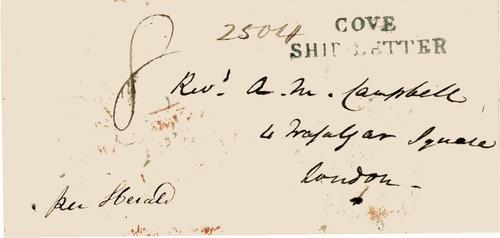 2504
COVE
SHIP LETTER
8
Revd A. M. Campbell
4 Trafalgar Square
London -
per Herald